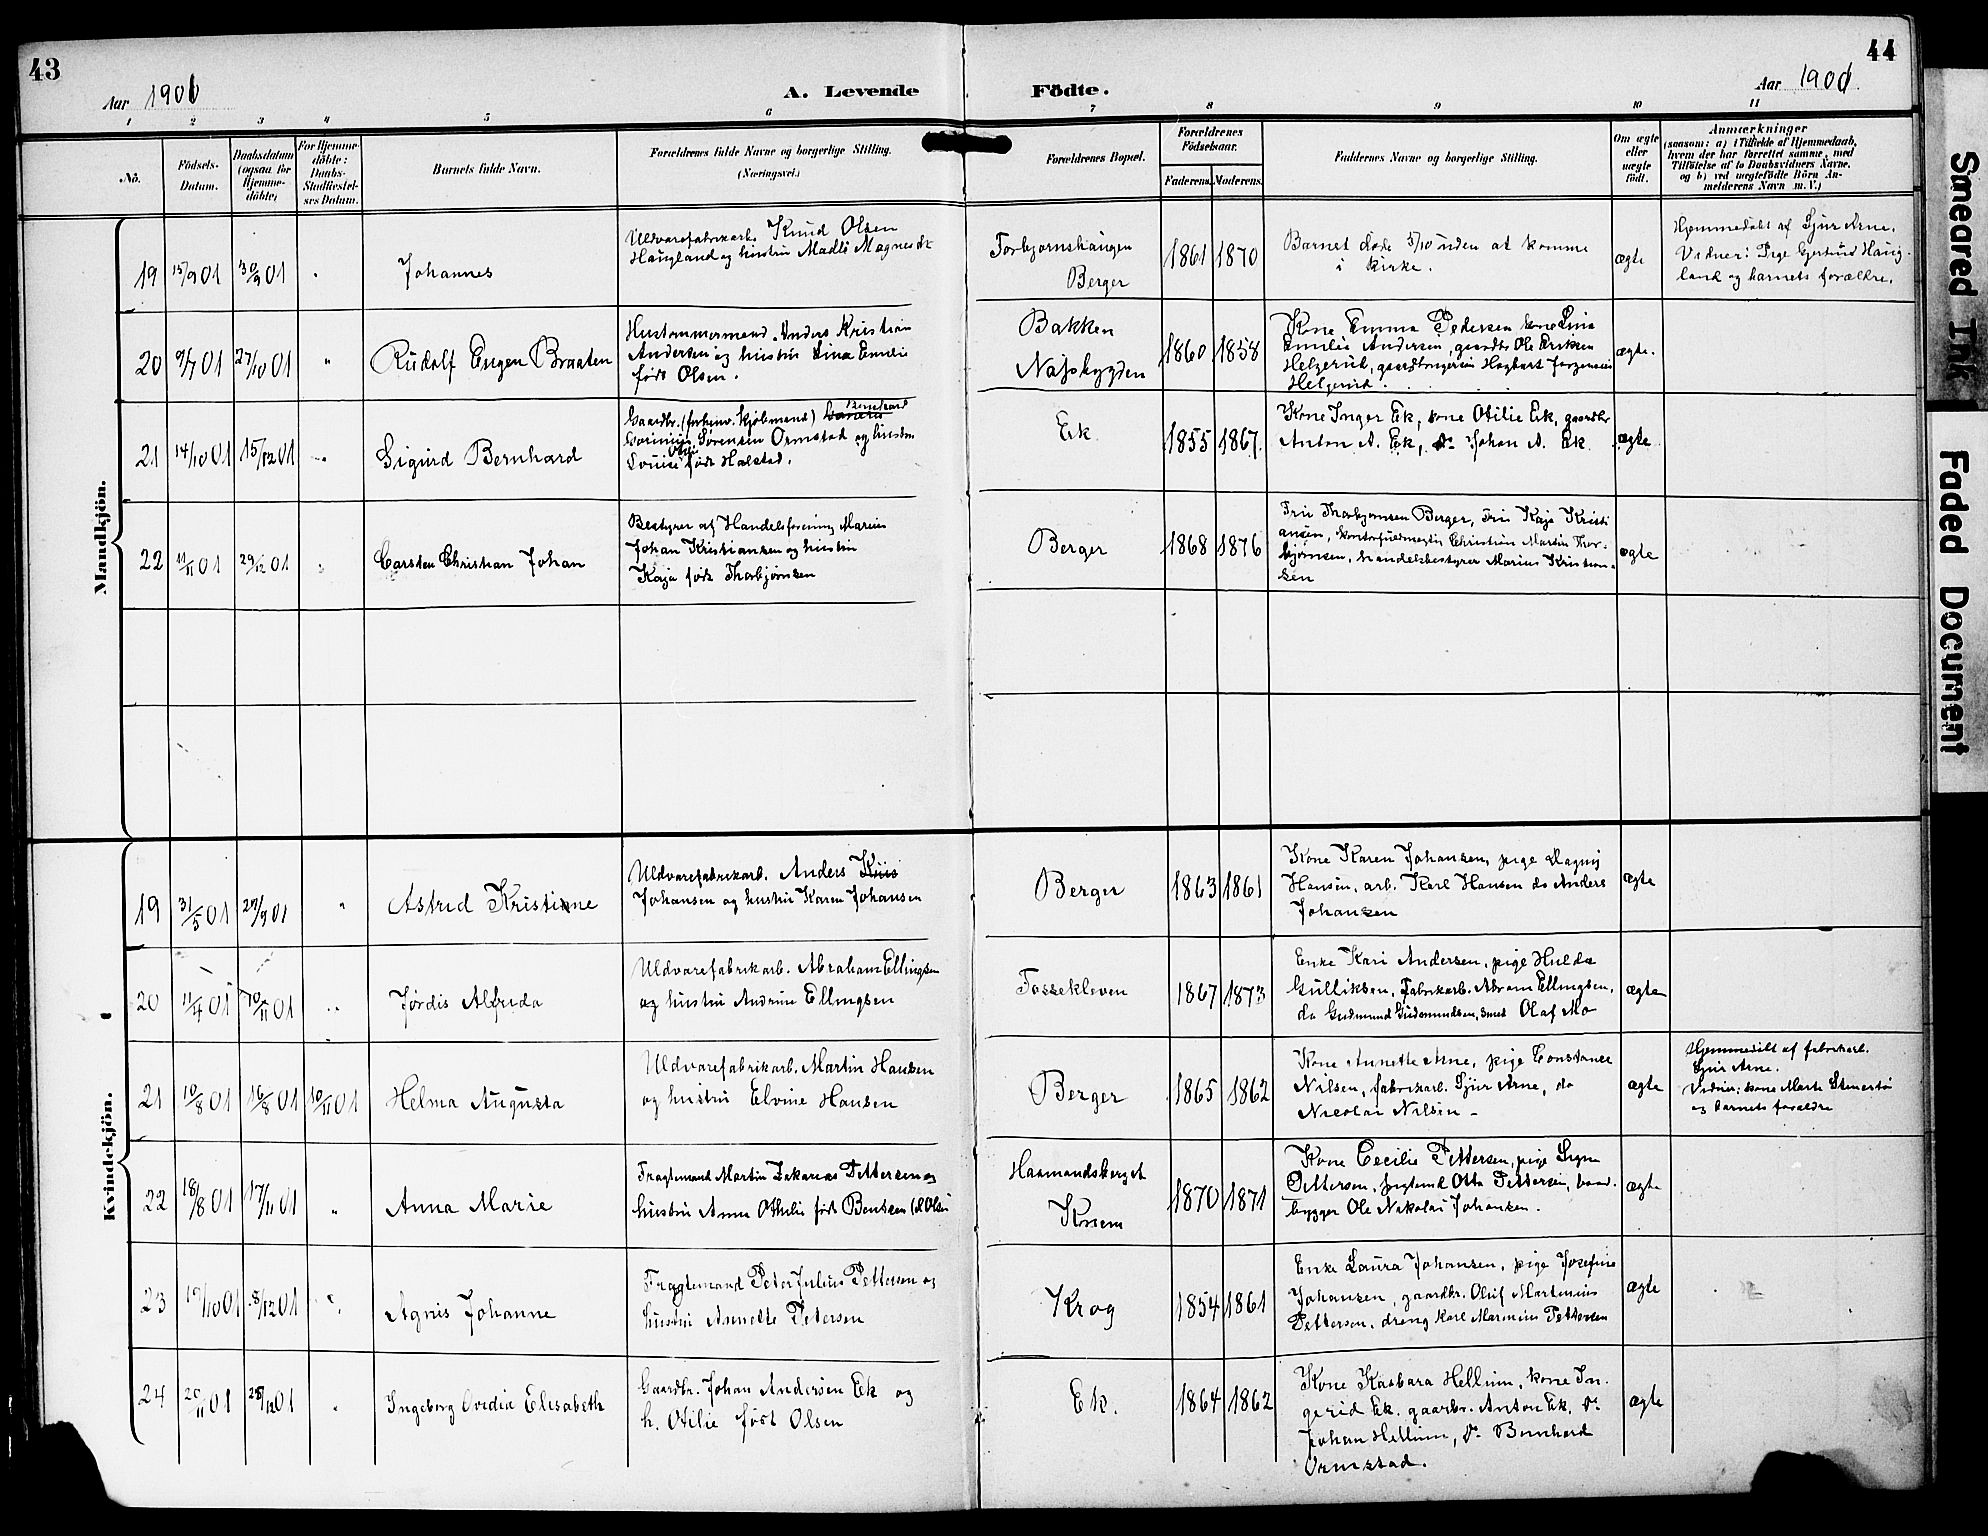 43
44
Aar 1901
A. Levende
Födte.
Aar 1901
1 2 3 4 5 6 7 8 9 10 11
No.
Födsels-
Datum.
Daabsdatum
(ogsaa for
Hjemme-
döbte)
For Hjemme-
döbte:
Daabs-
Stadfæstel-
ses Datum.
Barnets fulde Navn.
Forældrenes fulde Navne og borgerlige Stilling.
(Næringsvei.)
Forældrenes Bopæl.
Forældrenes
Födselsaar.
Faderens. Moderens.
Faddernes Navne og borgerlige Stilling.
Om ægte
eller
uægte
födt.
Anmærkninger
(saasom: a) i Tilfælde af Hjemmedaab,
hvem der har forrettet samme, med
Tilföielse af to Daabsvidners Navne,
og b) ved uægtefödte Börn An-
melderens Navn m. V.)
Mandkjön.
19 15/9 01 30/9 01 "
Johannes
Uldvarefabrikarb. Knud Olsen
Haugland og hustru Madli
Torbjornshaugen
Berger
1861 1870
Barnet døde 5/10 uden at komme
i kirke.
ægte
Hjemmedøbt af Sjur Arne.
Vidner: Pige Gjertrud Haug-
land og barnets forældre.
20 9/7 01 27/10 01 "
Rudolf Eugen Braaten
Hustømmermand Anders Kristian
Andersen og hustru Lina Emilie
født Olsen.
Bakken
Nøssbygden
1860 1858
Kone Emma Pedersen kone Lina
Emilie Andersen, gaardbr Ole Eriksen
Helgerud, Hagbart Jørgensen
Helgerud.
ægte.
21 14/10 01 15/12 01 "
Sigurd Bernhard
Gaardbr. (forhenv. kjøbmand) Bernhard
Sørensen Ormstad og hustru
Louise født Halstad.
Ek
1855 1867.
Kone Inger Ek, kone Otilie Ek, gaardbr
Anton A. Ek, do Johan A. Ek
ægte
22 11/11 01 29/12 01 "
Carsten Christian Johan
Bestyrer af Handelsforening Marius
Johan Kristiansen og hustru
Kaja født Thorbjørnsen
Berger
1868 1876
Fru Thorbjørnsen Berger, Fru Kaja Kristi
ansen, kontorfuldmægtig Christian Martin Thor-
bjørnsen, handelsbestyrer Marius Kristian-
sen
ægte
Kvindekjön.
19 31/5 01 29/9 01 "
Astrid Kristine
Uldvarefabrikarb. Anders
Johansen og hustru Karen Johansen
Berger
1863 1861
Kone Karen Johansen, pige Dagny
Hansen, arb. Karl Hansen do Anders
Johansen
ægte
20 11/4 01 10/11 01 "
Jørdis Alfrida
Uldvarefabrikarb. Abraham Ellingsen
og hustru Andrine Ellingsen
Fossekleven
1867 1873
Enke Kari Andersen, pige Hulda
Gulliksen, Fabrikarb. Abram Ellingsen,
do Gudmund Gudmundsen, smed Olaf Mo
ægte
21 10/8 01 16/8 01 10/11 01
Helma Augusta
Uldvarefabrikarb. Martin Hansen
og hustru Elvine Hansen
Berger
1865 1862
Kone Annette Arne, pige Constance
Nilsen, fabrikarb. Sjur Arne, do
Nicolai Nilsen -
ægte
Hjemmedøbt af fabrikarb.
Sjur Arne.
Vidner: kone Marte
og barnets forældre
22 18/8 01 17/11 01 "
Anna Marie
Fragtemand Martin Zakarias Pettersen og
hustru Anna Othilie født Bentsen
Haamandsberget
Knem
1870 1871
Kone Cecilie Pettersen, pige Signe
Pettersen, Otto Pettersen, baad-
bygger Ole Nikolai Johansen.
ægte
23 19/10 01 8/12 01 "
Agnis Johanne
Fragtemand Peter Julius Pettersen og
hustru Annette Petersen
Krog
1854 1861
Enke Laura Johansen, pige Josefine
Johansen, gaardbr. Oluf Martinius
Pettersen, dreng Karl Marinius Pettersen
ægte
24 20/11 01 28/12 01 "
Ingeborg Ovedia Elisabeth
Gaardbr. Johan Andersen Ek og
h. Otilie født Olsen
Ek.
1864 1862
Kone Kasbara Hellum, kone In-
gerid Ek. gaarbr. Anton Ek, do
Johan Hellum, do Bernhard
Ormstad.
ægte
Smeared Ink
Faded Document